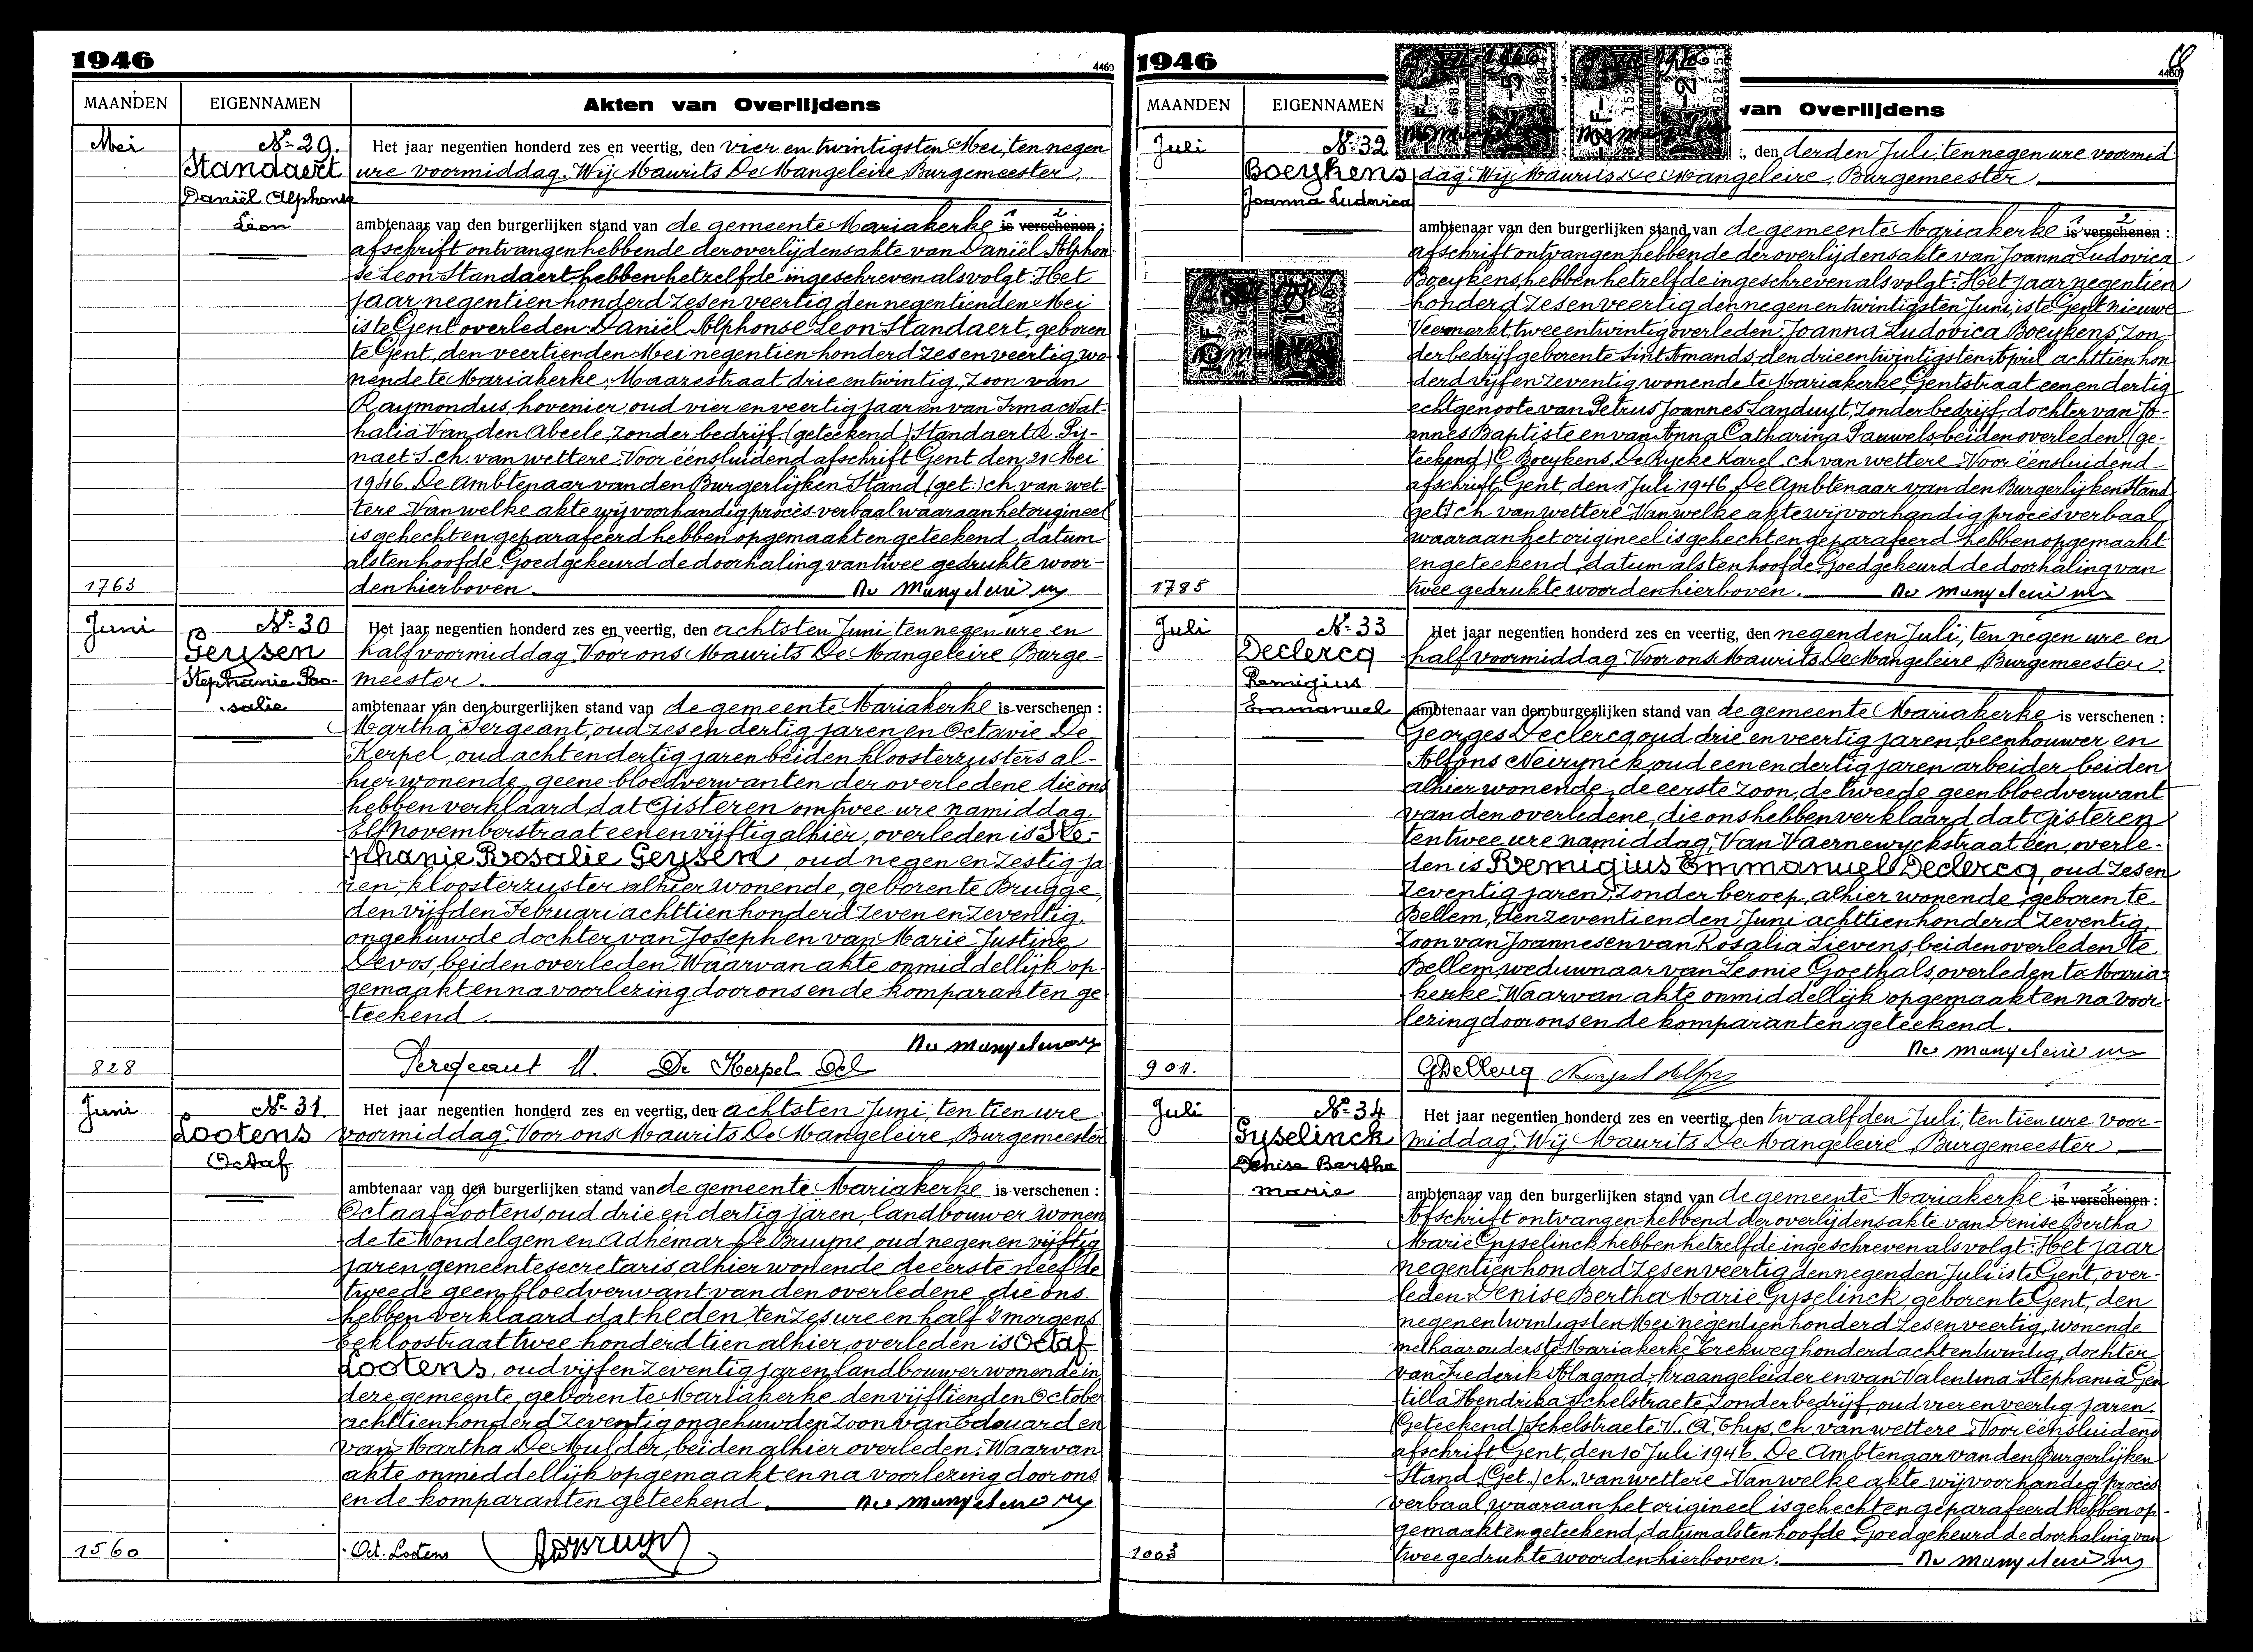 1946
4460
MAANDEN EIGENNAMEN Akten van Overlijdens
Mei
Nr 29.
Standaert
Daniël Alphonse
Léon
1763
Het jaar negentien honderd zes en veertig, den vier en twintigsten Mei, ten negen
ure voormiddag. Wij Maurits De Mangeleire Burgemeester
ambtenaar van den burgerlijken stand van de gemeente Mariakerke is verschenen :
afschrift ontvangen hebbende der overlijdensakte van Daniël Alphon
se Leon Standaert hebben hetzelfde ingeschreven als volgt: Het
jaar negentien honderd zes en veertig den negentienden Mei
is te Gent overleden: Daniël Alphonse Leon Standaert, geboren
te Gent, den veertienden Mei negentien honderd zes en veertig, wo-
nende te Mariakerke, Maarestraat drie en twintig, Zoon van
Raymondus, hovenier, oud vier en veertig jaar en van Irma Nat-
halia Van den Abeele, zonder bedrijf. (geteekend) Standaert R. Pij-
naet S. ch. van wettere. Voor éénsluidend afschrift Gent den 21 Mei
1946. De Ambtenaar van den Burgerlijken Stand (get.) ch. van wet-
tere Van welke akte wij voorhandig procès-verbaal waaraan het origineel
is gehecht en geparafeerd hebben opgemaakt en geteekend, datum
als ten hoofde. Goedgekeurd de doorhaling van twee gedrukte woor-
den hierboven.
Juni
Nr 30
Geysen
Stephanie Ro-
salie
828
Het jaar negentien honderd zes en veertig, den achtsten Juni, ten negen ure en
half voormiddag Voor ons Maurits De Mangeleire Burge-
meester
ambtenaar van den burgerlijken stand van de gemeente Mariakerke is verschenen :
Martha Sergeant, oud zes en dertig jaren en Octavie De
Kerpel, oud acht en dertig jaren beiden kloosterzusters al-
hier wonende, geene bloedverwanten der overledene die ons
hebben verklaard dat Gisteren om twee ure namiddag
Elf Novemberstraat een en vijftig alhier, overleden is Ste-
phanie Rosalie Geysen, oud negen en zestig ja
ren, kloosterzuster alhier wonende, geboren te Brugge,
den vijfden Februari achttien honderd zeven en zeventig,
ongehuwde dochter van Joseph en van Marie Justine
Devos, beiden overleden. Waarvan akte onmiddellijk op-
gemaakt en na voorlezing door ons en de komparanten ge
teekend.
Sergeant M. De Kerpel Oct
Juni
Nr 31.
Lootens
Octaf
1560
Het jaar negentien honderd zes en veertig, den achtsten Juni, ten tien ure
voormiddag Voor ons Maurits De Mangeleire, Burgemeester
ambtenaar van den burgerlijken stand van de gemeente Mariakerke is verschenen :
Octaaf Lootens, oud drie en dertig jaren, landbouwer wonen
de te Wondelgem en Adhemar De Bruyne oud negen en vijftig
jaren, gemeentesecretaris, alhier wonende de eerste neef de
tweede geen bloedverwant van den overledene die ons
hebben verklaard dat heden ten zes ure en half 's morgens
Eekloostraat twee honderd tien alhier, overleden is Octaf
Lootens, oud vijf en zeventig jaren landbouwer wonende in
deze gemeente, geboren te Mariakerke den vijftienden October
achttien honderd zeventig ongehuwden zoon van Edouard en
van Martha De Mulder, beiden alhier overleden. Waarvan
akte onmiddellijk opgemaakt en na voorlezing door ons
en de komparanten geteekend.
Oct. Lootens
1946
4460
MAANDEN EIGENNAMEN van Overlijdens
Juli
Nr 32
Boeykens
Joanna Ludovica
1785
, den derden Juli, ten negen ure voormid
dag. Wij Maurits De Mangeleire, Burgemeester
ambtenaar van den burgerlijken stand van de gemeente Mariakerke is verschenen :
afschrift ontvangen hebbende der overlijdensakte van Joanna Ludovica
Boeykens, hebben hetzelfde ingeschreven als volgt: Het jaar negentien
honderd zes en veertig den negen en twintigsten Juni, is te Gent nieuwe
Veemarkt, twee en twintig overleden: Joanna Ludovica Boeykens, zon-
der bedrijf geboren te Sint Amands den drie en twintigsten April achttien hon
derd vijf en zeventig wonende te Mariakerke, Gentstraat een en dertig
echtgenoote van Petrus Joannes Landuyt, zonder bedrijf, dochter van Jo-
annes Baptiste en van Anna Catharina Pauwels beiden overleden. (ge-
teekend) C. Boeykens. De Rycke Karel. ch van wettere Voor éénsluidend
afschrift. Gent, den 1 Juli 1946. De Ambtenaar van den Burgerlijken Stand
(get.) ch van wettere. Van welke akte wij voorhandig procesverbaal
waaraan het origineel is gehecht en geparafeerd hebben opgemaakt
en geteekend, datum als ten hoofde. Goedgekeurd de doorhaling van
twee gedrukte woorden hierboven.
Juli
Nr 33
Declercq
Remigius
Emmanuel
901.
Het jaar negentien honderd zes en veertig, den negenden Juli, ten negen ure en
half voormiddag Voor ons Maurits De Mangeleire, Burgemeester
ambtenaar van den burgerlijken stand van de gemeente Mariakerke is verschenen :
Georges Declercq oud drie en veertig jaren, beenhouwer en
Alfons Neirynck, oud een en dertig jaren arbeider beiden
alhier wonende, de eerste zoon, de tweede geen bloedverwant
van den overledene, die ons hebben verklaard dat Gisteren
ten twee ure namiddag, Van Vaernewyckstraat één, overle-
den is Remigius Emmanuel Declercq, oud zes en
zeventig jaren, zonder beroep, alhier wonende geboren te
Bellem, den zeventienden Juni achttien honderd zeventig,
Zoon van Joannes en van Rosalia Lievens, beiden overleden te
Bellem, weduwnaar van Leonie Goethals, overleden te Maria-
kerke. Waarvan akte onmiddellijk opgemaakt en na voor-
lezing door ons en de komparanten geteekend.
Juli
Nr 34
Gyselinck
Denise Bertha
Marie
1003
Het jaar negentien honderd zes en veertig, den twaalfden Juli, ten tien ure voor-
middag. Wij Maurits De Mangeleire, Burgemeester
ambtenaar van den burgerlijken stand van de gemeente Mariakerke is verschenen :
Afschrift ontvangen hebbend der overlijdensakte van Denise Bertha
Marie Gyselinck hebben hetzelfde ingeschreven als volgt: Het jaar
negentien honderd zes en veertig den negenden Juli is te Gent, over-
leden Denise Bertha Marie Gyselinck, geboren te Gent, den
negen en twintigsten Mei negentien honderd zes en veertig, wonende
met haar ouders te Mariakerke Trekweg honderd acht en twintig, dochter
van Frederik Alagond, kraangeleider en van Valentina Stephania Gen
tilla Hendrika Schelstraete, zonder bedrijf, oud vier en veertig jaren.
(Geteekend) Schelstraete V. A. Thys. Ch. van wettere. Voor éénsluidend
afschrift Gent, den 10 Juli 1946. De Ambtenaar van den Burgerlijken
Stand (Get.) ch. van wettere Van welke akte wij voorhandig procès
verbaal waaraan het origineel is gehecht en geparafeerd hebben op-
gemaakt en geteekend, datum als ten hoofde. Goedgekeurd de doorhaling van
twee gedrukte woorden hierboven.